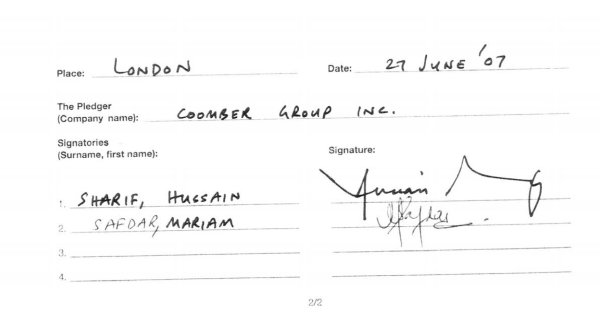 Place: LONDON Date: 27 JUNE '07
The Pledger
(Company name): COOMBER GROUP INC.
Signatories
(Surname, first name): Signature:
1. SHARIF, HUSSAIN
2. SAFDAR, MARIAM
3.
4.
2/2